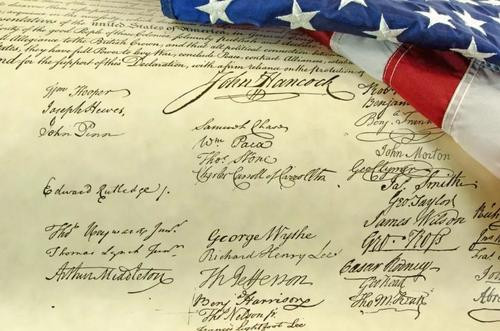 united States of America
good People of these Colonies
to the British Crown, and that all political connection
they have full Power to levy War, conclude Peace, contract Alliances,
And for the support of this Declaration, with a firm reliance on the Protection of
John Hancock
Wm Hooper
Joseph Hewes,
John Penn
Edward Rutledge /.
Thos Heyward Junr.
Thomas Lynch Junr.
Arthur Middleton
Samuel Chase
Wm Paca
Thos Stone
Charles Carroll of Carrollton
George Wythe
Richard Henry Lee
Th Jefferson
Benj Harrison
Thos Nelson jr.
Francis Lightfoot Lee
Benj. Franklin
John Morton
Geo Clymer
Jas. Smith
Geo. Taylor
James Wilson
Geo. Ross
Caesar Rodney
Geo Read
Tho M:Kean